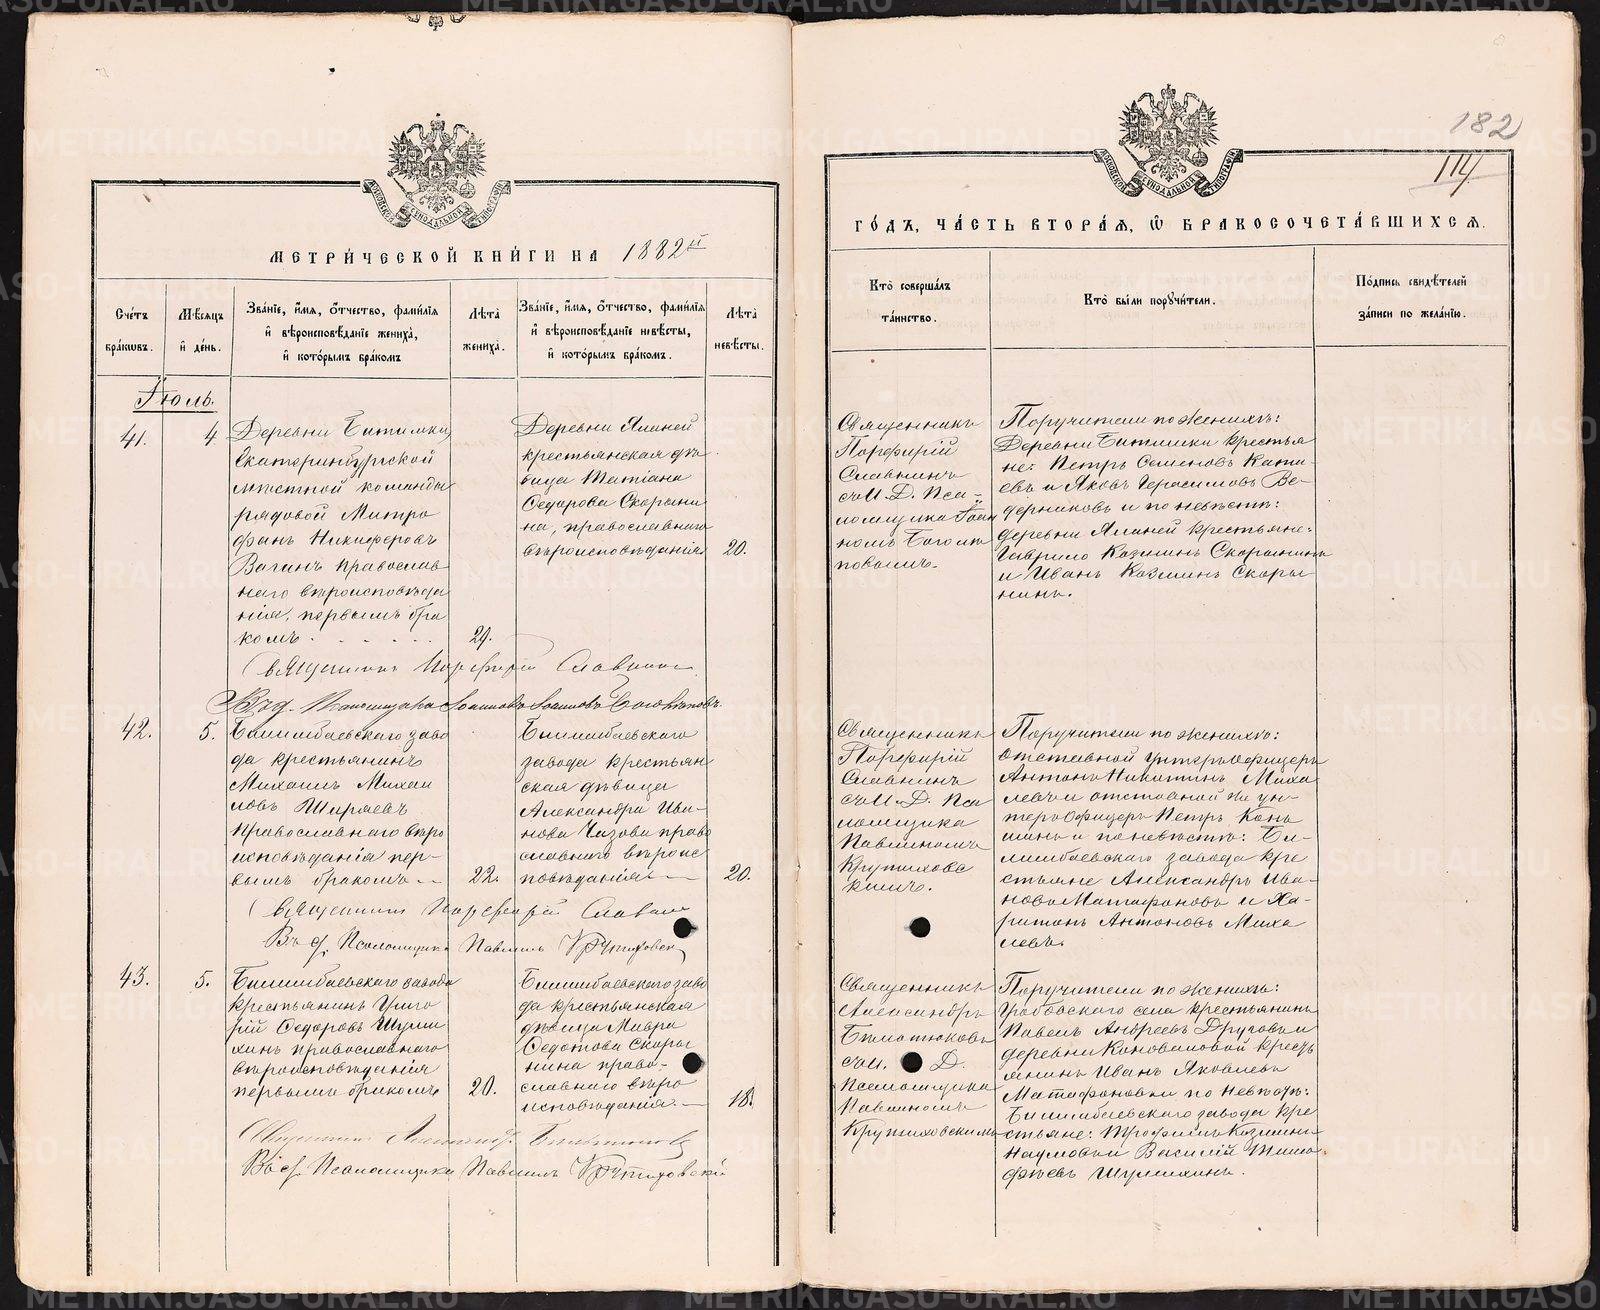 МЕТРИ́ЧЕСКОЙ КНИ́ГИ НА 1882й
Сче́тъ бра́кѡвъ.
Мѣ́сяцъ и҆ де́нь.
Зва́нїе, и҆́мя, ѻ҆́тчество, фамѝлїя и҆ вѣроисповѣ́данїе жениха̀, и҆ кото́рымъ бра́комъ
Лѣ́та жениха̀.
Зва́нїе, и҆́мя, ѻ҆́тчество, фамѝлїя и҆ вѣроисповѣ́данїе невѣ́сты, и҆ кото́рымъ бра́комъ.
Лѣ́та невѣ́сты.
Іюль.
41.
4
Деревни Битимки
Екатеринбургской
мѣстной команды
рядовой Митро
фанъ Никифоровъ
Вагинъ православ
наго вѣроисповѣда
нія, первымъ бра
комъ
Деревни Яланей
крестьянская дѣ
вица Татіана
Ѳедорова Скорыни
на, православнаго
вѣроисповѣданія
20.
Священникъ Порфирій Славнинъ
42.
5.
Билимбаевскаго заво
да крестьянинъ
Михаилъ Михаи
ловъ Ширяевъ
православнаго вѣро
исповѣданія пер-
вымъ бракомъ
22.
Билимбаевскаго
завода крестьян
ская дѣвица
Александра Ива-
нова Чазова право
славнаго вѣроис
повѣданія
20.
Священникъ Порфирій Славнинъ
Псаломщика Павлинъ Крутиховскій
43.
5.
Билимбаевскаго завода
крестьянинъ Григо
рій Ѳедоровъ Шуми
хинъ православнаго
вѣроисповѣданія
первымъ бракомъ
20.
Билимбаевскаго заво
да крестьянская
дѣвица Мавра
Ѳедотова Скоры
нина право-
славнаго вѣро
исповѣданія
18.
Священникъ Александръ
Псаломщика Павлинъ Крутиховскій
182
114
ГО́ДЪ, ЧА́СТЬ ВТОРА́Я, Ѽ БРАКОСОЧЕТА́ВШИХСЯ.
Кто̀ соверша́лъ та́инство.
Кто̀ бы́ли поручи́тели.
По́дпись свидѣ́телей за́писи по жела́нїю.
Священникъ
Порфирій
Славнинъ
съ И. Д. Пса-
ломщика Іоан
номъ Боголѣ
повымъ.
Поручители по женихѣ:
Деревни Битимки крестья
не: Петръ Семеновъ Ката
евъ и Яковъ Герасимовъ Ве-
дерниковъ и по невѣстѣ:
деревни Яланей крестьяне:
Гаврило Козминъ Скорынинъ
и Иванъ Козминъ Скоры
нинъ.
Священникъ
Порфирій
Славнинъ
съ И. Д. Пса
ломщика
Павлиномъ
Крутиховс
кимъ.
Поручители по женихѣ:
отставной унтеръ офицеръ
Антонъ Никитинъ Миха
левъ и отставной же ун-
теръ офицеръ Петръ Конь
шинъ и по невѣстѣ: Би-
лимбаевскаго завода кре
стьяне Александръ Ива-
новъ Матафоновъ и Ха-
ритонъ Антоновъ Миха
левъ.
Священникъ
Александръ
съ И. Д.
Псаломщика
Павлиномъ
Крутиховскимъ
Поручители по женихѣ:
Гробовскаго села крестьянинъ
Павелъ Андреевъ Друговъ и
деревни Коноваловой кресть
янинъ Иванъ Яковлевъ
Матафоновъ и по невѣстѣ:
Билимбаевскаго завода кре
стьяне: Трофимъ Козминъ
Наумовъ и Василій Тимо
фѣевъ Шумихинъ.